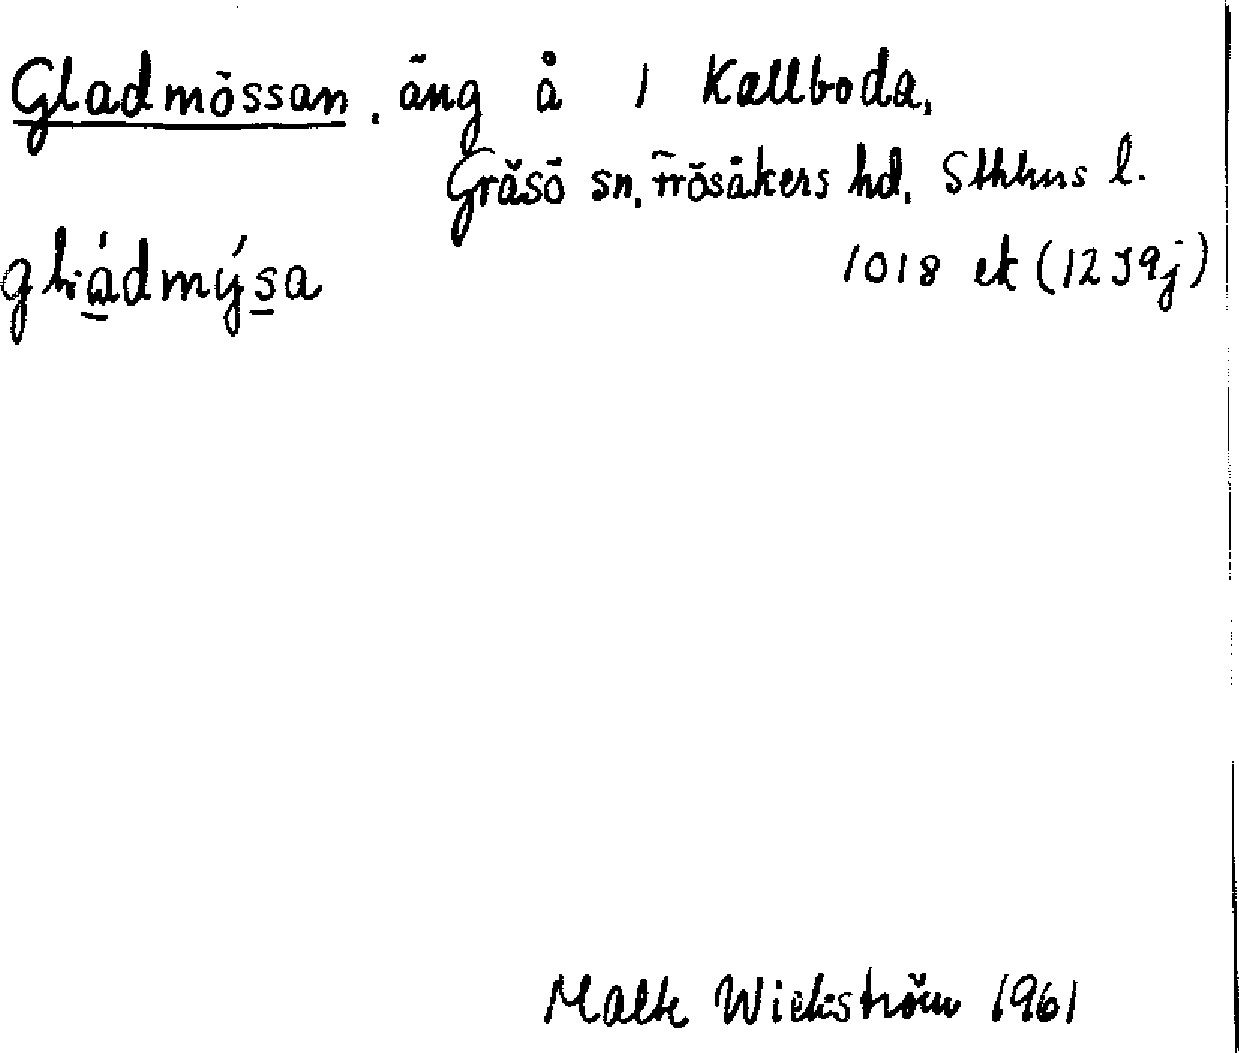 Gladmossan, äng å 1 Kallboda,
Gräsö sn, Frösåkers hd, Sthlms l.
1018 ek (12I9j)
Malte Wickström 1961